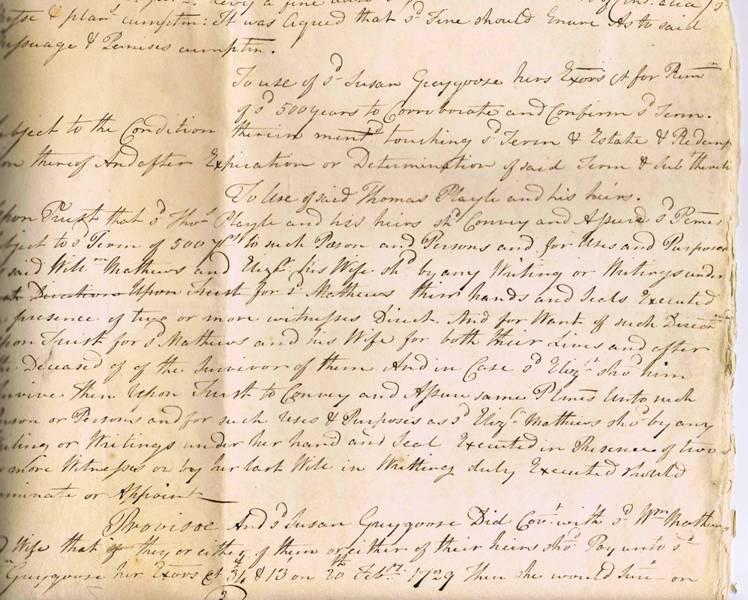 levy a fine
& plan.t cumptm: It was agued that s.d Fine should Enure As to said
essuage & Pemises cumptm.
To use of s.d Susan Graygoose hers Exors &c for Rem.r
of s.d 500 years to Corroborate and Confirm s.d Term.
ubject to the Condition therein ment.d touching s.d Term & Estate & Redemp
on thereof And after Expiration or Determination of said Term & sub.t thereto
To Use of said Thomas Playle and his heirs.
Upon Trust that s.d Tho.s Playle and his heirs sh.d Convey and Assure s.d Pemes
ubject to s.d Term of 500 y.rs to such Person and Persons and for Uses and Purposes
said Will.m Mathews and Eliz.h his Wife sh.d by any Writing or Writings under
Directions Upon Trust for s.d Mathews their hands and Seals Executed
presence of two or more witnesses Direct. And for Want of such Direcon
pon Trust for s.d Mathews and his Wife for both their Lives and after
Deceased of of the Survivor of them And in Case s.d Eliz.h sho.d him
rvive Then Upon Trust to Convey and Assure same Pemes Unto such
erson or Persons and for such Uses & Purposes as s.d Eliz.h Mathews sho.d by any
riting or Writings under her hand and Seal Executed in Presence of two
more Witnesses or by her last Will in Writing duly Executed should
ominate or Appoint
Provisoe And s.d Susan Graygoose Did Cov.t with s.d W.m Mathews
Wife that if they or either of them or either of their heirs sho.d Pay unto s.d
Graygoose her Exors &c & 13 on 20th Feb.ry 1729 Then she would on